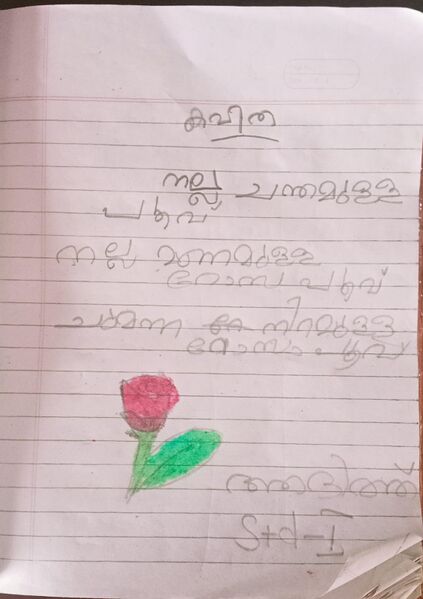 കവിത
നല്ല ചന്തമുള്ള
പൂവ്
നല്ല മണമുള്ള
റോസാ പൂവ്
ചുമന്ന നിറമുള്ള
റോസാ പൂവ്
ആദിത്ത്
Std-I